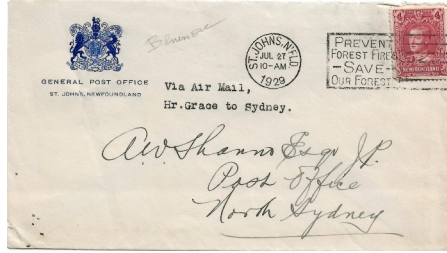 GENERAL POST OFFICE
ST. JOHN'S, NEWFOUNDLAND
ST. JOHN'S, N'F'L'D
JUL 27
10-AM
1929
PREVENT
FOREST FIRES
-SAVE-
OUR FOREST
NEWFOUNDLAND
Via Air Mail,
Hr.Grace to Sydney.
A W Shanno Esqr J.P.
Post Office
North Sydney